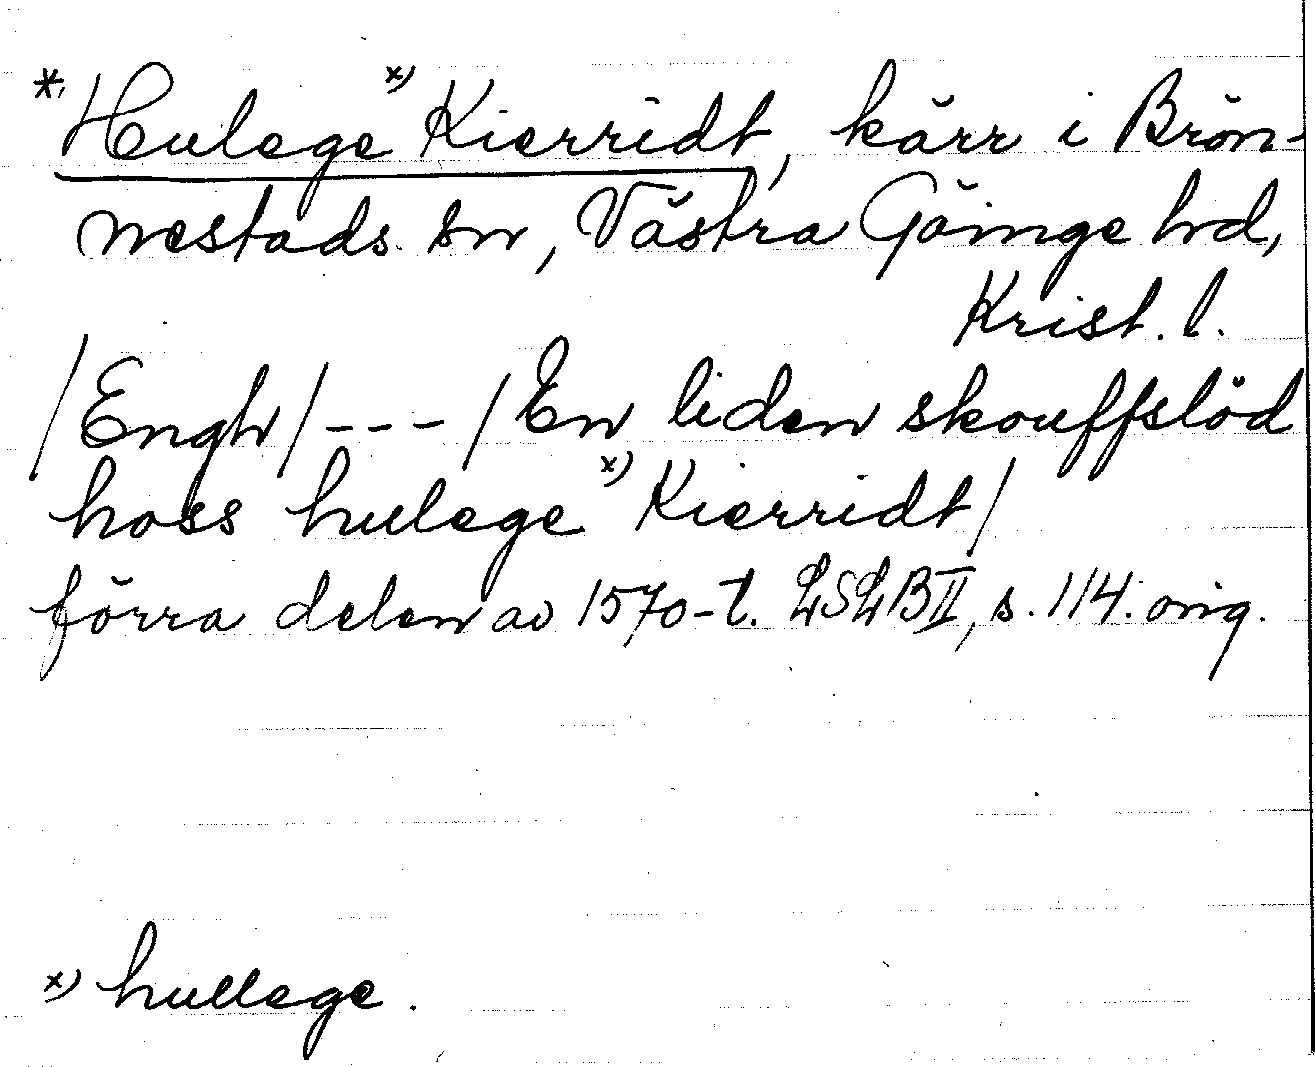 *Hulege x) Kierridt, kärr i Brön-
nestads sn, Västra Göinge hd,
Krist. l.
/Engh/ --- /En liden skouffslöd
hoss hulege x) Kierridt/
förra delen av 1570-t. LSLB II, s. 114. orig.
x) hullege.